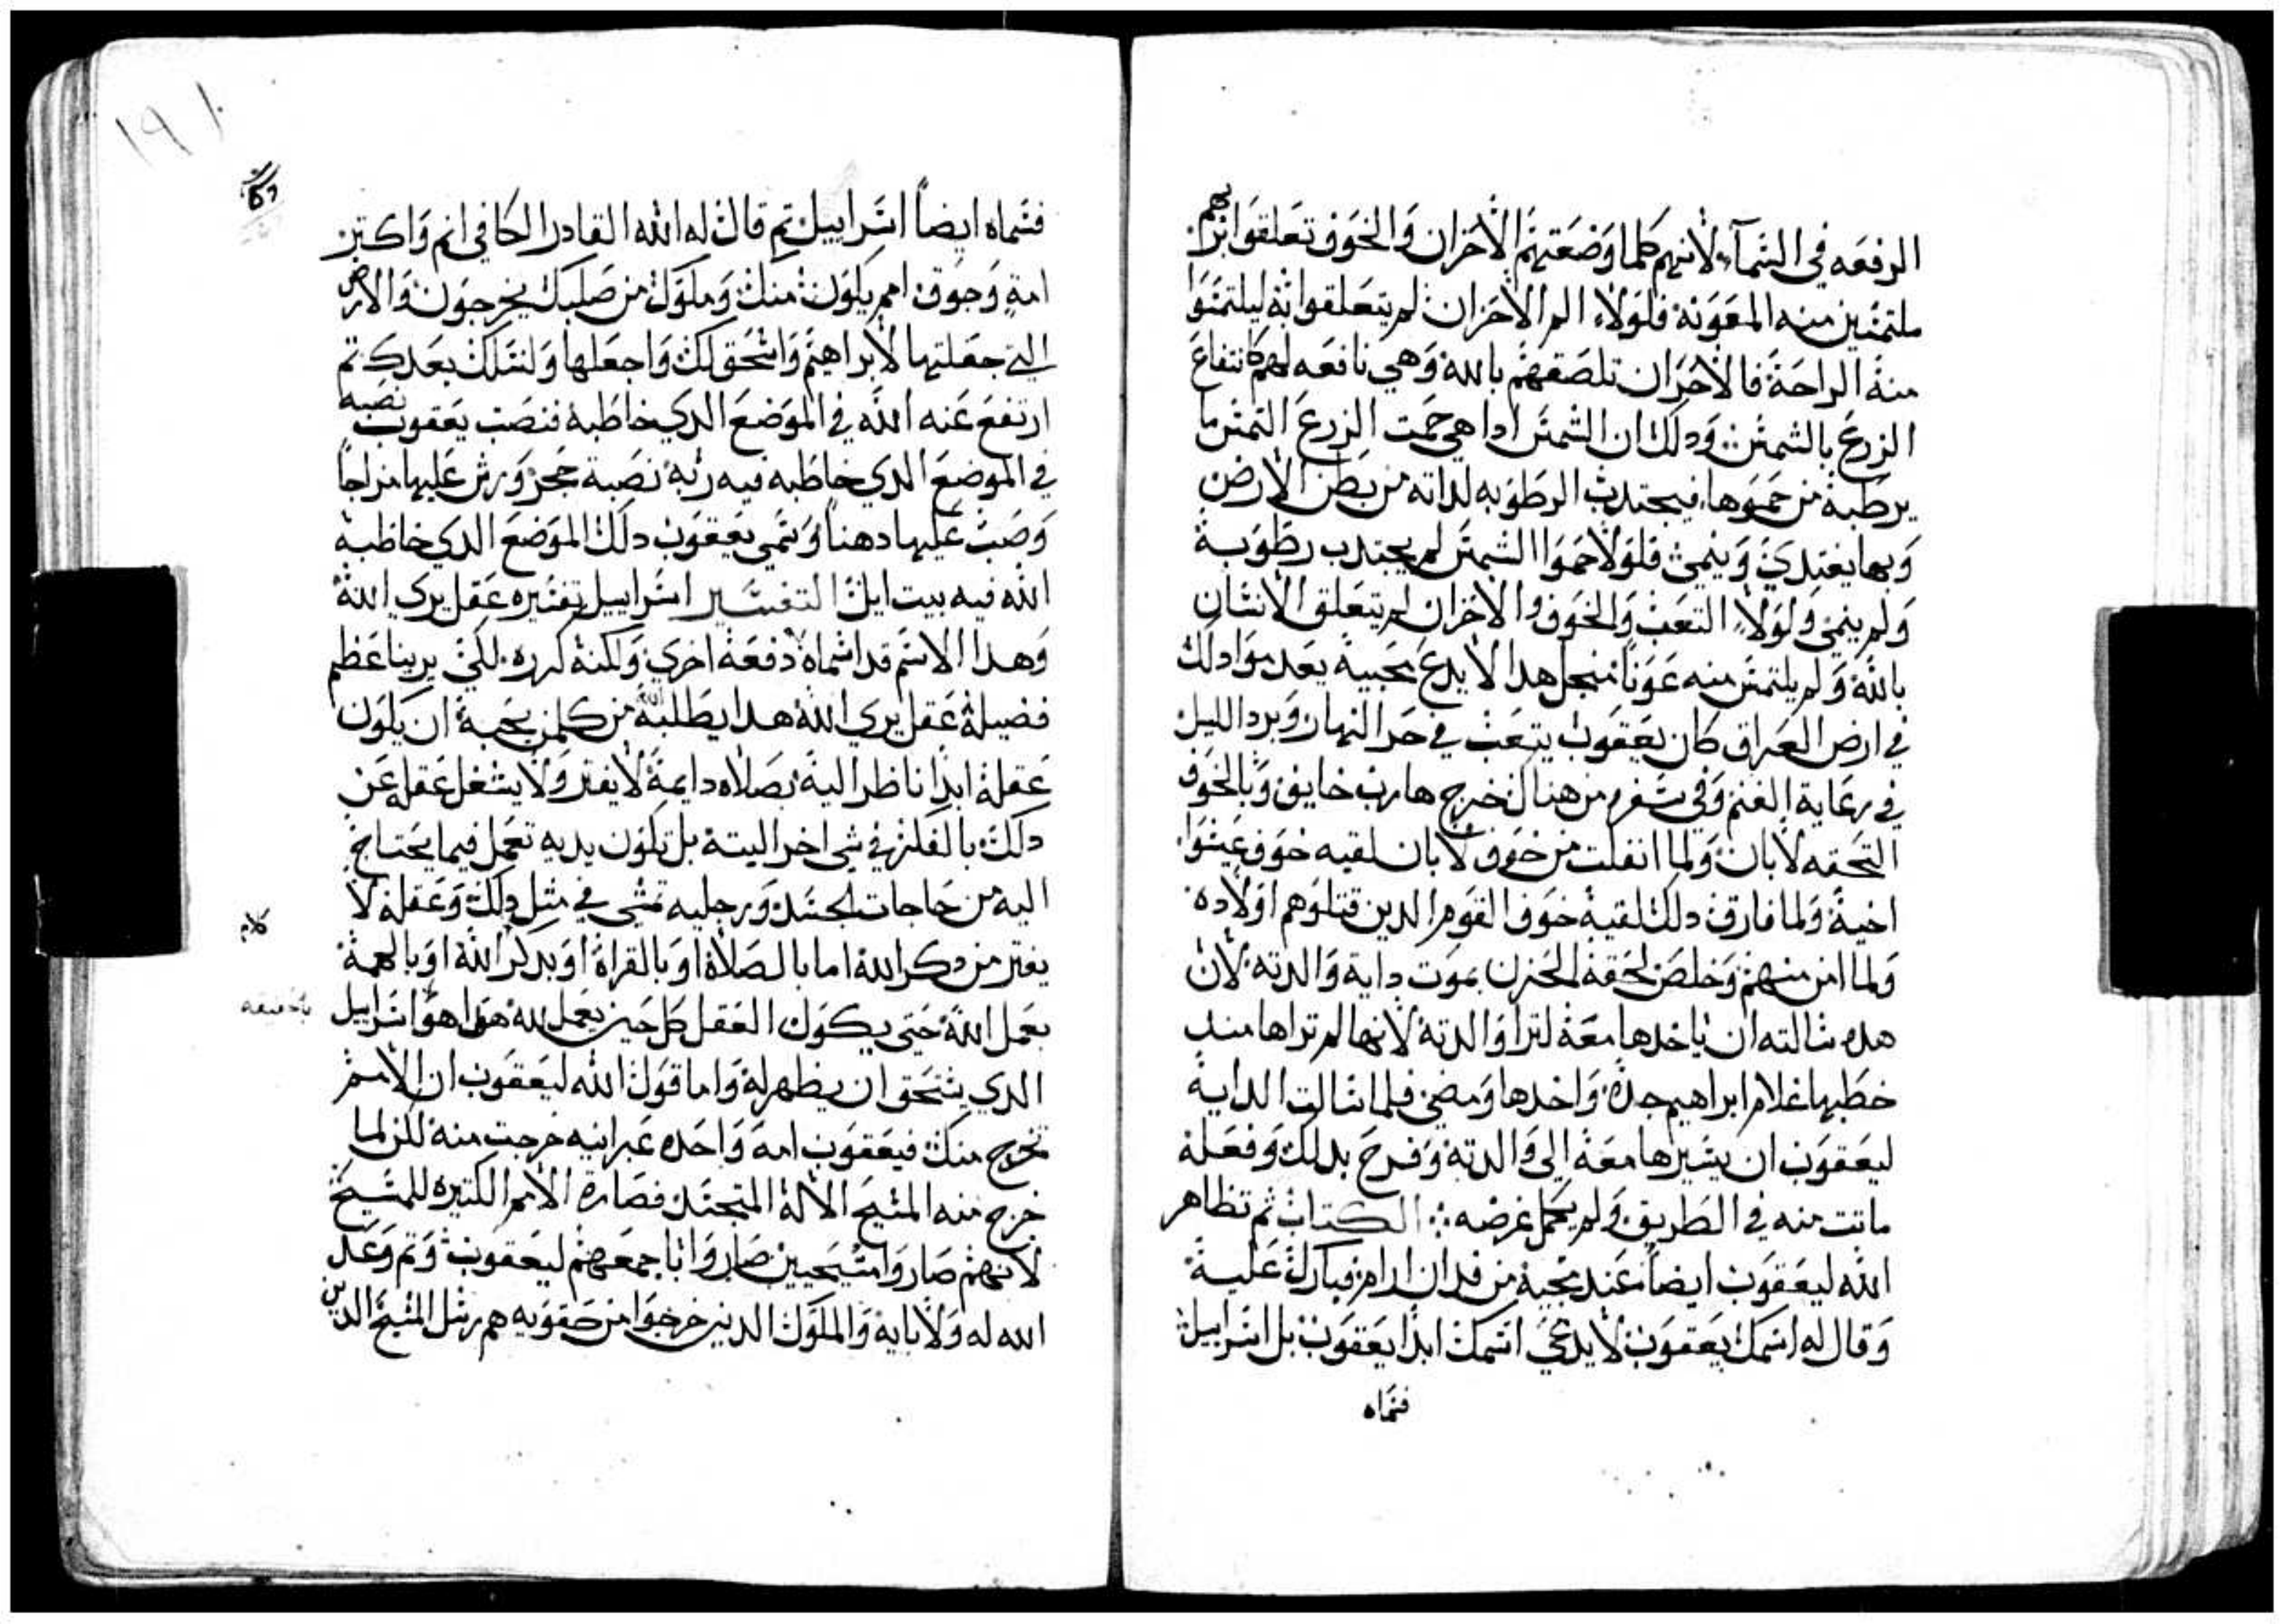 الرفعه في السمآء لانهم كلما وضعتهم الاحزان والخوف تعلقوا بربهم
ملتمسين منه المعونة فلولا الم الاحزان لم يتعلقوا به ليلتمسوا
منه الراحة فالاحزان تلصقهم بالله وهي نافعه لهم كانتفاع
الزرع بالشمس ودلك ان الشمس ادا هي حمت الزرع التمس ما
يرطبه من حموها فيجتدب الرطوبه لداته من بطن الارض
وبها يغتدي وينمي فلولا حموا الشمس لم يجتدب رطوبة
ولم ينمي ولولا التعب والخوف والاحزان لم يتعلق الانسان
بالله ولم يلتمس منه عونا منجل هدا لا يدع محبيه بعدموا دلك
في ارض العراق كان يعقوب يتعب في حر النهار وبرد الليل
في رعاية الغنم وفي سفره من هناك خرج هارب خايف وبالخوف
التحقه لابان ولما انفلت من خوف لابان لقيه خوف عيسوا
اخية ولما فارق دلك لقية خوف القوم الدين قتلوهم اولاده
ولما امن منهم وخلص لحقة الحزن بموت داية والدته لان
هده سالته ان ياخدها معة لترا والدتة لانها لم تراها مند
خطبها غلام ابراهيم جدة واخدها ومضي فلما سالت الداية
ليعقوب ان يسيرها معة الي والدتة وفرح بدلك وفعلة
ماتت منه في الطريق ولم يكمل غرضه ∴ الكتاب ثم تظاهر
الله ليعقوب ايضاً عند مجية من فدان ارام فبارك علية
وقال له اسمك يعقوب لا يدعي اسمك ابدا يعقوب بل اسراييل
فسماه
١٩١
فسماه ايضاً اسراييل تم قال له الله القادر الكافي انم واكتر
امة وجوق امم يكون منك وملوك من صلبك يخرجون والارض
التي جعلتها لابراهيم واسحق لك واجعلها ولنسلك بعدك تم
ارتفع عنه الله في الموضع الدي خاطبة فنصب يعقوب نصبه
في الموضع الدي خاطبه فيه ربة نصبة حجر ورش عليها مزاجاً
وصب عليها دهناً وسمي يعقوب دلك الموضع الدي خاطبة
الله فيه بيت ايل التفسير اسراييل تفسيره عقل يري الله
وهدا الاسم قد اسماه دفعة اخري ولكنة كرره لكي يرينا عظم
فضيلة عقل يري الله هدا يطلبة الله من كلمن يحبة ان يكون
عقلة ابداً ناظراً الية بصلاه دايمة لا يفتر ولا يشغل عقله عن
دلك بالفكر في شي اخر البتة بل تكون يديه تعمل فيما يحتاج
اليه من حاجات الجسد ورجليه تمشي في مثل دلك وعقلة لا
يفتر من دكر الله اما بالصلاة او بالقراة او بدكر الله او بالهمة
بعمل الله حتي يكون العقل كل حين يعمل لله هدا هو اسراييل
الدي يستحق ان يظهر لة واما قول الله ليعقوب ان الامم
تخرج منك فيعقوب امة واحده عبرانيه خرجت منة لكن لما
خرج منه المسيح الالة المتجسد فصارة الامم الكتيره للمسيح
لانهم صاروا مسيحيين صاروا باجمعهم ليعقوب وتم وعد
الله له ولابايه والملوك الدين خرجوا من حقويه هم رسل المسيح الدين